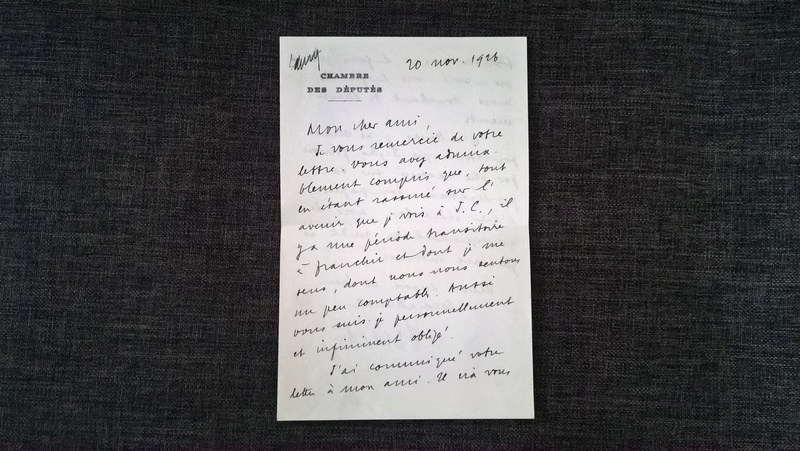 CHAMBRE
DES DÉPUTÉS
20 nov. 1926
Mon cher ami,
Je vous remercie de votre
lettre. Vous avez admira-
blement compris que, tout
en étant rassuré sur l'
avenir que je vois à J.C., il
y a une période transitoire
à franchir et dont je me
sens, dont nous nous sentons
un peu comptables. Aussi
vous suis-je personnellement
et infiniment obligé.
J'ai communiqué votre
lettre à mon ami. Il va vous